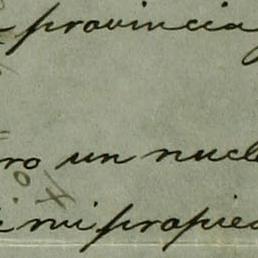 a provincia y
ro un nucle
i mi propied